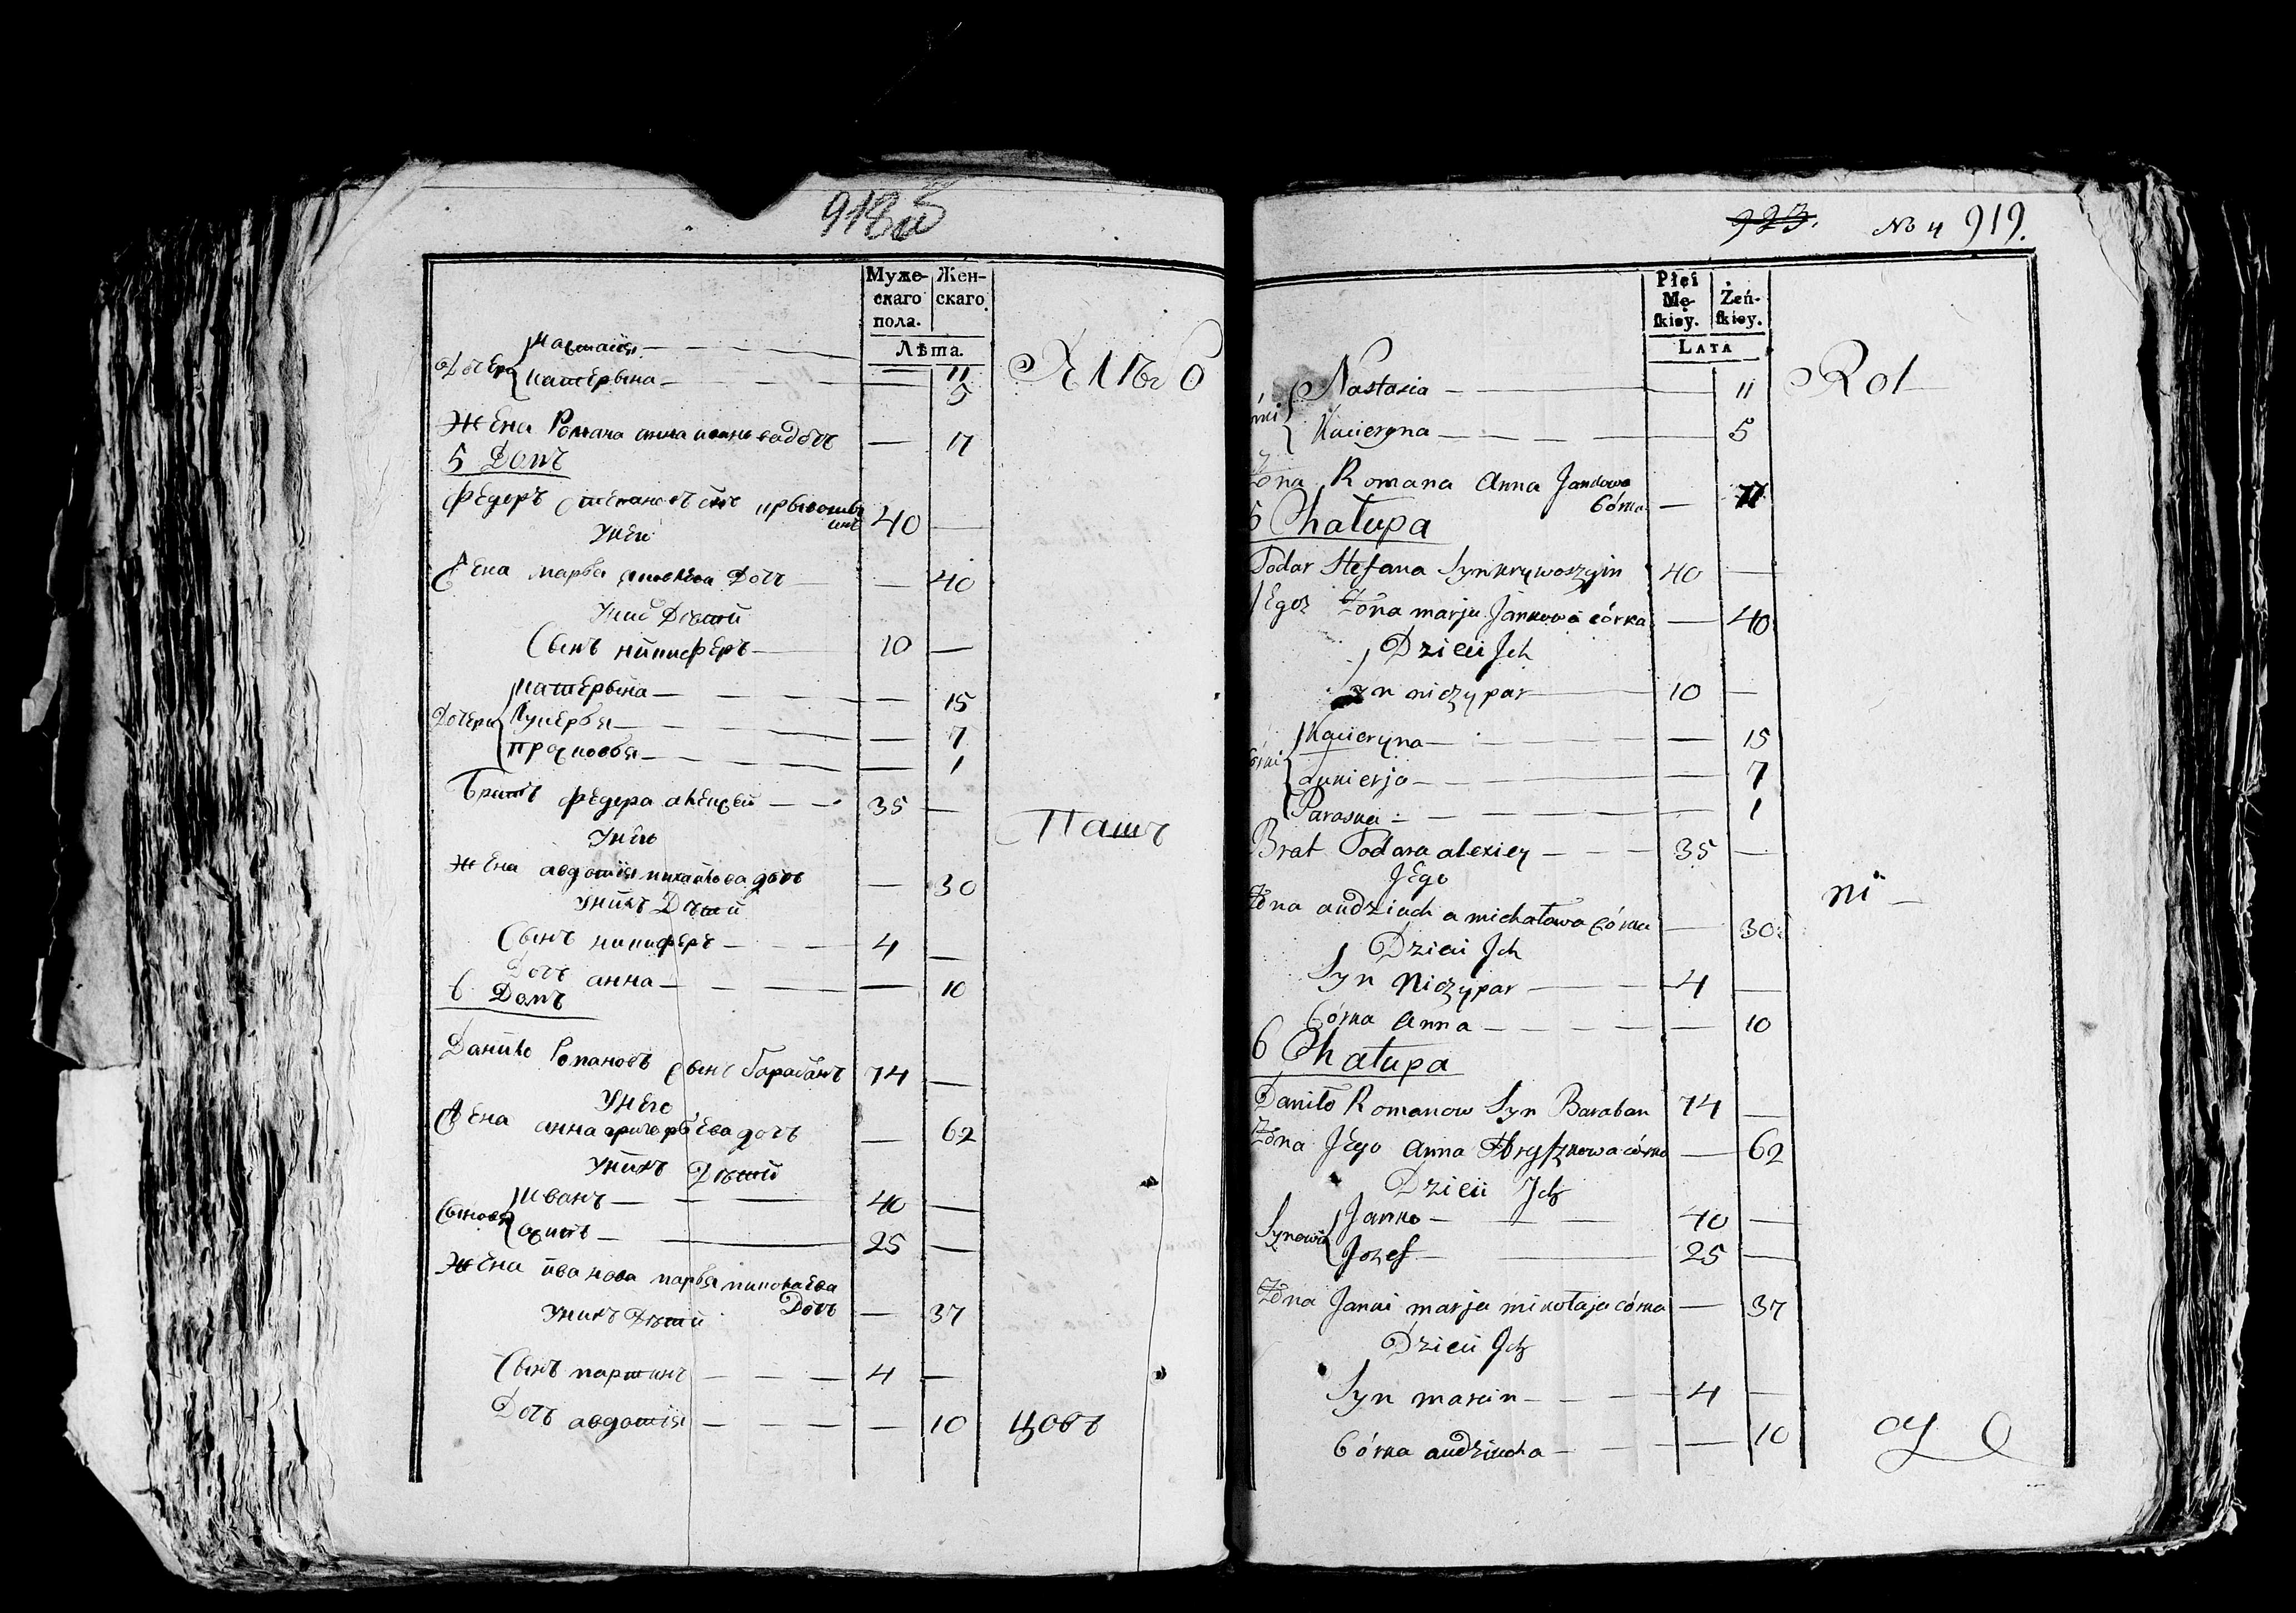 918 об
Муже-
скаго
пола.
Жен-
скаго
Лѣта.
Дочери Настасія — 11
Катерына — 5
Хлѣбо
Жена Романа анна иванова дочь — 17
5 Домъ
Федеръ Степановъ сынъ Крывошы
инъ 40 —
У него
Жена марья Дочь — 40
У нихъ Дѣтей
Сынъ никиферъ — 10 —
Дочери Катерына — 15
Лукерья — 7
Прасковья — 1
Братъ Федера алексей — 35 —
У него
Пашъ
Жена авдотія михайлова дочь — 30
У нихъ Дѣтей
Сынъ никиферъ — 4 —
Дочь анна — 10
6 Домъ
Данило Романовъ сынъ Барабанъ 74 —
У него
Жена анна григорьева дочь — 62
У нихъ Дѣтей
Сыновья Иванъ — 40 —
осипъ — 25 —
Жена иванова марья миколаева
Дочь — 37
У нихъ Дѣтей
Сынъ мартинъ — 4 —
Дочь авдотія — 10
цовъ
923. No 4 919.
Płci
Mę-
skiey.
Żeń-
skiey.
LATA
Nastasia — 11
Rol
Kacieryna — 5
Żona Romana Anna Jankowa
Córka — 17
5 Chałupa
Todar Stefana Syn Krywoszyin 40 —
Jego Żona marja Jankowa córka — 40
Dzieci Ich
Syn niczypar — 10 —
Kacieryna — 15
Łukierja — 7
Paraska — 1
Brat Todara alexiey — 35 —
Jego
ni
Żona audziucha michałowa Córka — 30
Dzieci Ich
Syn Niczypar — 4 —
Córka Anna — 10
6 Chałupa
Daniło Romanow Syn Baraban 74 —
Żona Jego Anna Hryszkowa córka — 62
Dzieci Ich
Synowie Janko — 40 —
Jozef — 25 —
Żona Janki marja mikołaja córka — 37
Dzieci Ich
Syn marcin — 4 —
Córka audziucha — 10
cy